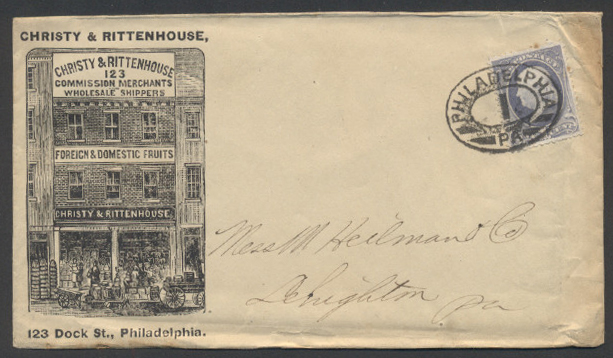 CHRISTY & RITTENHOUSE,
CHRISTY & RITTENHOUSE
123
COMMISSION MERCHANTS
WHOLESALE SHIPPERS
FOREIGN & DOMESTIC FRUITS
CHRISTY & RITTENHOUSE
123 Dock St., Philadelphia.
POSTAGE
PHILADELPHIA
PA.
Mess M Heilman & Co
Lehighton
Pa